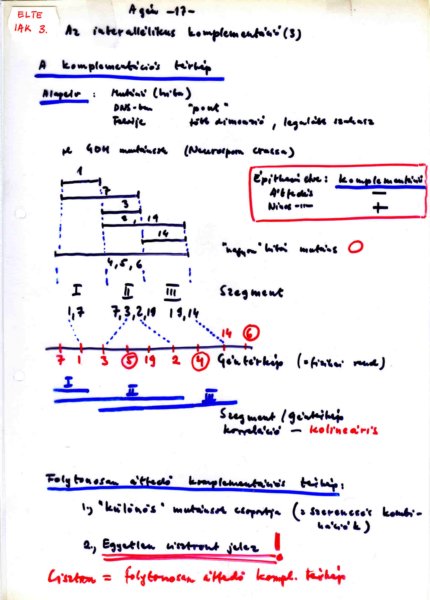 ELTE
IAK 3.
A gén -17-
Az interallélikus komplementáció (3)
A komplementációs térkép
Alapelv: Mutáció (hiba)
DNS-ben "pont"
Fehérje több dimenzió, legalább szakasz
GDH mutánsok (Neurospora crassa)
1
7
3
2, 19
14
4, 5, 6
Építkezési elv: komplementáció
Átfedés –
Nincs -"- +
"nagyon" hibás mutáns O
I II III Szegment
1,7 7,3,2,19 19,14
14 6
7 1 3 5 19 2 4 Géntérkép (=fizikai rend)
I II III
Szegment/géntérkép
korreláció – kolineáris
Folytonosan átfedő komplementációs térkép:
1, "különös" mutánsok csoportja (=szerencsés kombi-
nációk)
2, Egyetlen cisztront jelez !
Cisztron = folytonosan átfedő kompl. térkép